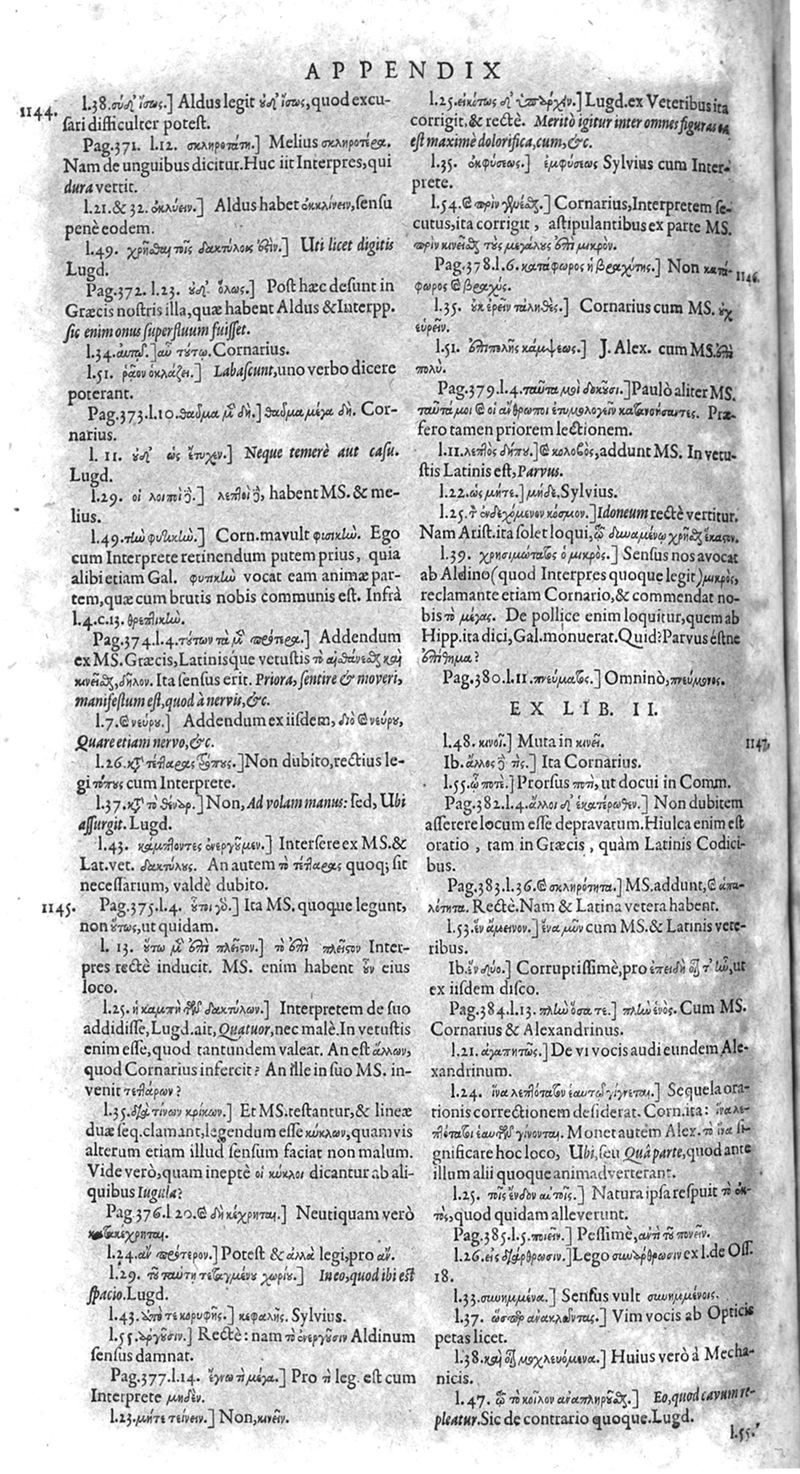 APPENDIX
1144.
l.38. σύδ' ἴσως.] Aldus legit οὐδ' ἴσως, quod excu-
sari difficulter potest.
Pag.371. l.12. σκληροτάτη.] Melius σκληροτέρα.
Nam de unguibus dicitur. Huc iit Interpres, qui
dura vertit.
l.21. & 32. ἐκλύειν.] Aldus habet ἐκκλίνειν, sensu
penè eodem.
l.49. χρῆσθαι τοῖς δακτύλοις ἐστὶν.] Uti licet digitis
Lugd.
Pag.372. l.23. οὐδ' ὅλως.] Post hæc desunt in
Græcis nostris illa, quæ habent Aldus & Interpp.
sic enim onus superfluum fuisset.
l.34. αὐτῷ.] αὖ τούτῳ. Cornarius.
l.51. ῥᾷον ὀκλάζει.] Labascunt, uno verbo dicere
poterant.
Pag.373.l.10. θαῦμα μὲν δὴ.] θαῦμα μέγα δὴ. Cor-
narius.
l.11. οὐδ' ὡς ἔτυχεν.] Neque temerè aut casu.
Lugd.
l.29. οἱ λοιποὶ δὲ.] λεπτοὶ δὲ, habent MS. & me-
lius.
l.49. τὴν φυτικὴν.] Corn. mavult φυσικὴν. Ego
cum Interprete retinendum putem prius, quia
alibi etiam Gal. φυτικὴν vocat eam animæ par-
tem, quæ cum brutis nobis communis est. Infrà
l.4.c.13. θρεπτικὴν.
Pag.374.l.4. τούτων τὰ μὲν πρότερα.] Addendum
ex MS. Græcis, Latinisque vetustis τὸ αἰσθάνεσθαι καὶ
κινεῖσθαι, δῆλον. Ita sensus erit. Priora, sentire & moveri,
manifestum est, quod à nervis, &c.
l.7. καὶ νεύρου.] Addendum ex iisdem, διὸ καὶ νεύρου,
Quare etiam nervo, &c.
l.26. κατὰ τέτταρας τρόπους.] Non dubito, rectius le-
gi τόπους cum Interprete.
l.37. κατὰ τὸ θέναρ.] Non, Ad volam manus: sed, Ubi
assurgit. Lugd.
l.43. κάμπτοντες ἐνεργοῦμεν.] Intersere ex MS. &
Lat. vet. δακτύλους. An autem τὸ τέτταρας quoq; sit
necessarium, valdè dubito.
1145.
Pag.375.l.4. ὅτοι γοῦ.] Ita MS. quoque legunt,
non οὕτως, ut quidam.
l.13. οὕτω μὲν ἐπὶ πλεῖστον.] τὸ ἐπὶ πλεῖστον Inter-
pres rectè inducit. MS. enim habent οὖν ejus
loco.
l.25. ἡ καμπὴ τῶν δακτύλων.] Interpretem de suo
addidisse, Lugd. ait, Quatuor, nec malè. In vetustis
enim esse, quod tantundem valeat. An est ἄλλων,
quod Cornarius infercit? An ille in suo MS. in-
venit τεττάρων?
l.35. διὰ τίνων κρίκων.] Et MS. testantur, & lineæ
duæ seq. clamant, legendum esse κύκλων, quam vis
alterum etiam illud sensum faciat non malum.
Vide verò, quam ineptè οἱ κύκλοι dicantur ab ali-
quibus Iugula?
Pag.376. l 20. καὶ δὴ κέχρηται.] Neutiquam verò
κατακέχρηται.
l.24. ἂν πρότερον.] Potest & ἀλλὰ legi, pro ἂν.
l.29. τοῦ ταύτῃ τεταγμένου χωρίου.] In eo, quod ibi est
spacio. Lugd.
l.43. ὑπό τε κορυφῆς.] κεφαλῆς. Sylvius.
l.55. ἀργοῦσιν.] Rectè: nam τὸ ἐνεργοῦσιν Aldinum
sensus damnat.
Pag.377.l.14. ἔγνω τὶ μέγα.] Pro τὶ leg. est cum
Interprete μηδὲν.
l.23. μήτε τείνειν.] Non, κινεῖν.
l.25. εἰκότως δ' ὑπάρχειν.] Lugd. ex Veteribus ita
corrigit. & rectè. Meritò igitur inter omnes figuras ea
est maximè dolorifica, cum, &c.
l.35. ἐκφύσεως.] ἐμφύσεως Sylvius cum Inter-
prete.
l.54. καὶ πρὶν γενέσθαι.] Cornarius, Interpretem se-
cutus, ita corrigit, astipulantibus ex parte MS.
πρὶν κινεῖσθαι τοὺς μεγάλους ἐπὶ μικρὸν.
Pag.378.l.6. κατάφωρος ἡ βραχύτης.] Non κατά-
1146.
φωρος καὶ βραχύς.
l.35. οὐκ ἐρεῖν τἀληθὲς.] Cornarius cum MS. οὐχ
εὑρεῖν.
l.51. ἐπιπολῆς κάμψεως.] J. Alex. cum MS. ἐπὶ
πολὺ.
Pag.379.l.4. ταῦτά μοι δοκοῦσι.] Paulò aliter MS.
ταῦτά μοι καὶ οἱ ἄνθρωποι ἐτυμολογεῖν κατανοήσαντες. Præ-
fero tamen priorem lectionem.
l.11. λεπτὸς δήπου.] καὶ κολοβὸς, addunt MS. In vetu-
stis Latinis est, Parvus.
l.22. ὡς μήτε.] μήδε. Sylvius.
l.25. τὸν ἐνδεχόμενον κόσμον.] Idoneum rectè vertitur.
Nam Arist. ita solet loqui, τῷ δυναμένῳ χρῆσθαι ἕκαστον.
l.39. χρησιμώτατος ὁ μικρὸς.] Sensus nos avocat
ab Aldino (quod Interpres quoque legit) μικρὸς,
reclamante etiam Cornario, & commendat no-
bis τὸ μέγας. De pollice enim loquitur, quem ab
Hipp. ita dici, Gal. monuerat. Quid? Parvus éstne
ἐπίθημα?
Pag.380.l.11. πνεύματος.] Omninò, πνεύμονος.
EX LIB. II.
1147.
l.48. κινοῖ.] Muta in κινεῖ.
Ib. ἄλλος δὲ τὶς.] Ita Cornarius.
l.55. ὥ ποτε.] Prorsus ποτὶ, ut docui in Comm.
Pag.382.l.4. ἄλλοι δ' ἑκατέρωθεν.] Non dubitem
asserere locum esse depravatum. Hiulca enim est
oratio, tam in Græcis, quàm Latinis Codici-
bus.
Pag.383.l.36. καὶ σκληρότητα.] MS. addunt, καὶ ἁπα-
λότητα. Rectè. Nam & Latina vetera habent.
l.53. ἓν ἄμεινον.] ἕνα μῦν cum MS. & Latinis vete-
ribus.
Ib. ἓν δύο.] Corruptissimè, pro ἐπειδὴ διὰ τ' ὧν, ut
ex iisdem disco.
Pag.384.l.13. πλὴν ὅσα τε.] πλὴν ἑνός. Cum MS.
Cornarius & Alexandrinus.
l.21. ἀγαπητῶς.] De vi vocis audi eundem Ale-
xandrinum.
l.24. ἵνα λεπτότατον ἑαυτοῦ γίγνεται.] Sequela ora-
tionis correctionem desiderat. Corn. ita: ἵνα λε-
πτότατοι ἑαυτῶν γίνονται. Monet autem Alex. τὸ ἵνα si-
gnificare hoc loco, Ubi, seu Quâ parte, quod ante
illum alii quoque animadverterant.
l.25. τοῖς ἔνδον αὐτοῖς.] Natura ipsa respuit τὸ ἐκ-
τὸς, quod quidam alleverunt.
Pag.385.l.5. ποιεῖν.] Pessimè, ἀντὶ τοῦ πονεῖν.
l.26. εἰς διάρθρωσιν.] Lego συνάρθρωσιν ex l. de Oss.
18.
l.33. συνημμένα.] Sensus vult συνημμένοις.
l.37. ὥσπερ ἀνακλῶντας.] Vim vocis ab Opticis
petas licet.
l.38. καὶ διαμοχλευόμενα.] Huius verò à Mecha-
nicis.
l.47. τῷ τὸ κοῖλον ἀναπληροῦσθαι.] Eo, quod cavum re-
pleatur. Sic de contrario quoque. Lugd.
l.55.